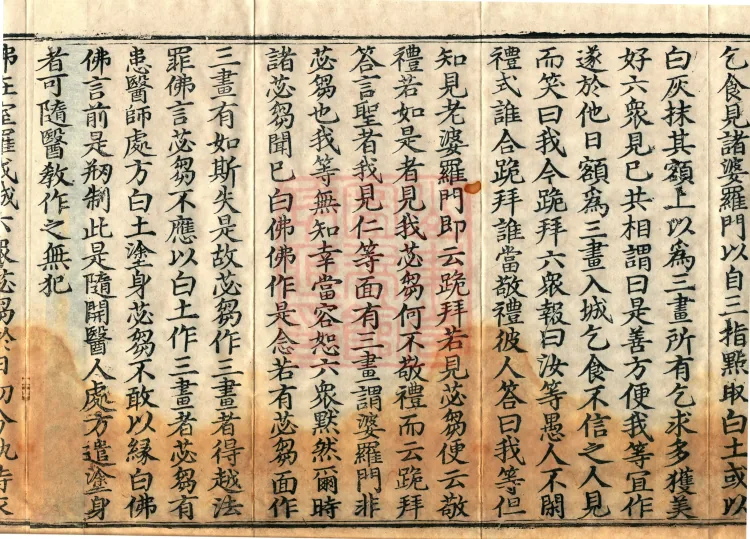 乞食見諸婆羅門以自三指點取白土或以
白灰抹其額上以為三畫所有乞求多獲美
好六衆見已共相謂曰是善方便我等宜作
遂於他日額為三畫入城乞食不信之人見
而笑曰我今跪拜六衆報曰汝等愚人不閑
禮式誰合跪拜誰當敬禮彼人答曰我等但
知見老婆羅門即云跪拜若見苾芻便云敬
禮若如是者見我苾芻何不敬禮而云跪拜
答言聖者我見仁等面有三畫謂婆羅門非
苾芻也我等無知幸當容恕六衆默然爾時
諸苾芻聞已白佛佛作是念若有苾芻面作
三畫有如斯失是故苾芻作三畫者得越法
罪佛言苾芻不應以白土作三畫者苾芻有
患醫師處方白土塗身苾芻不敢以緣白佛
佛言前是剙制此是隨開醫人處方遣塗身
者可隨醫教作之無犯
佛在室羅伐城六衆苾芻於日初分執持衣